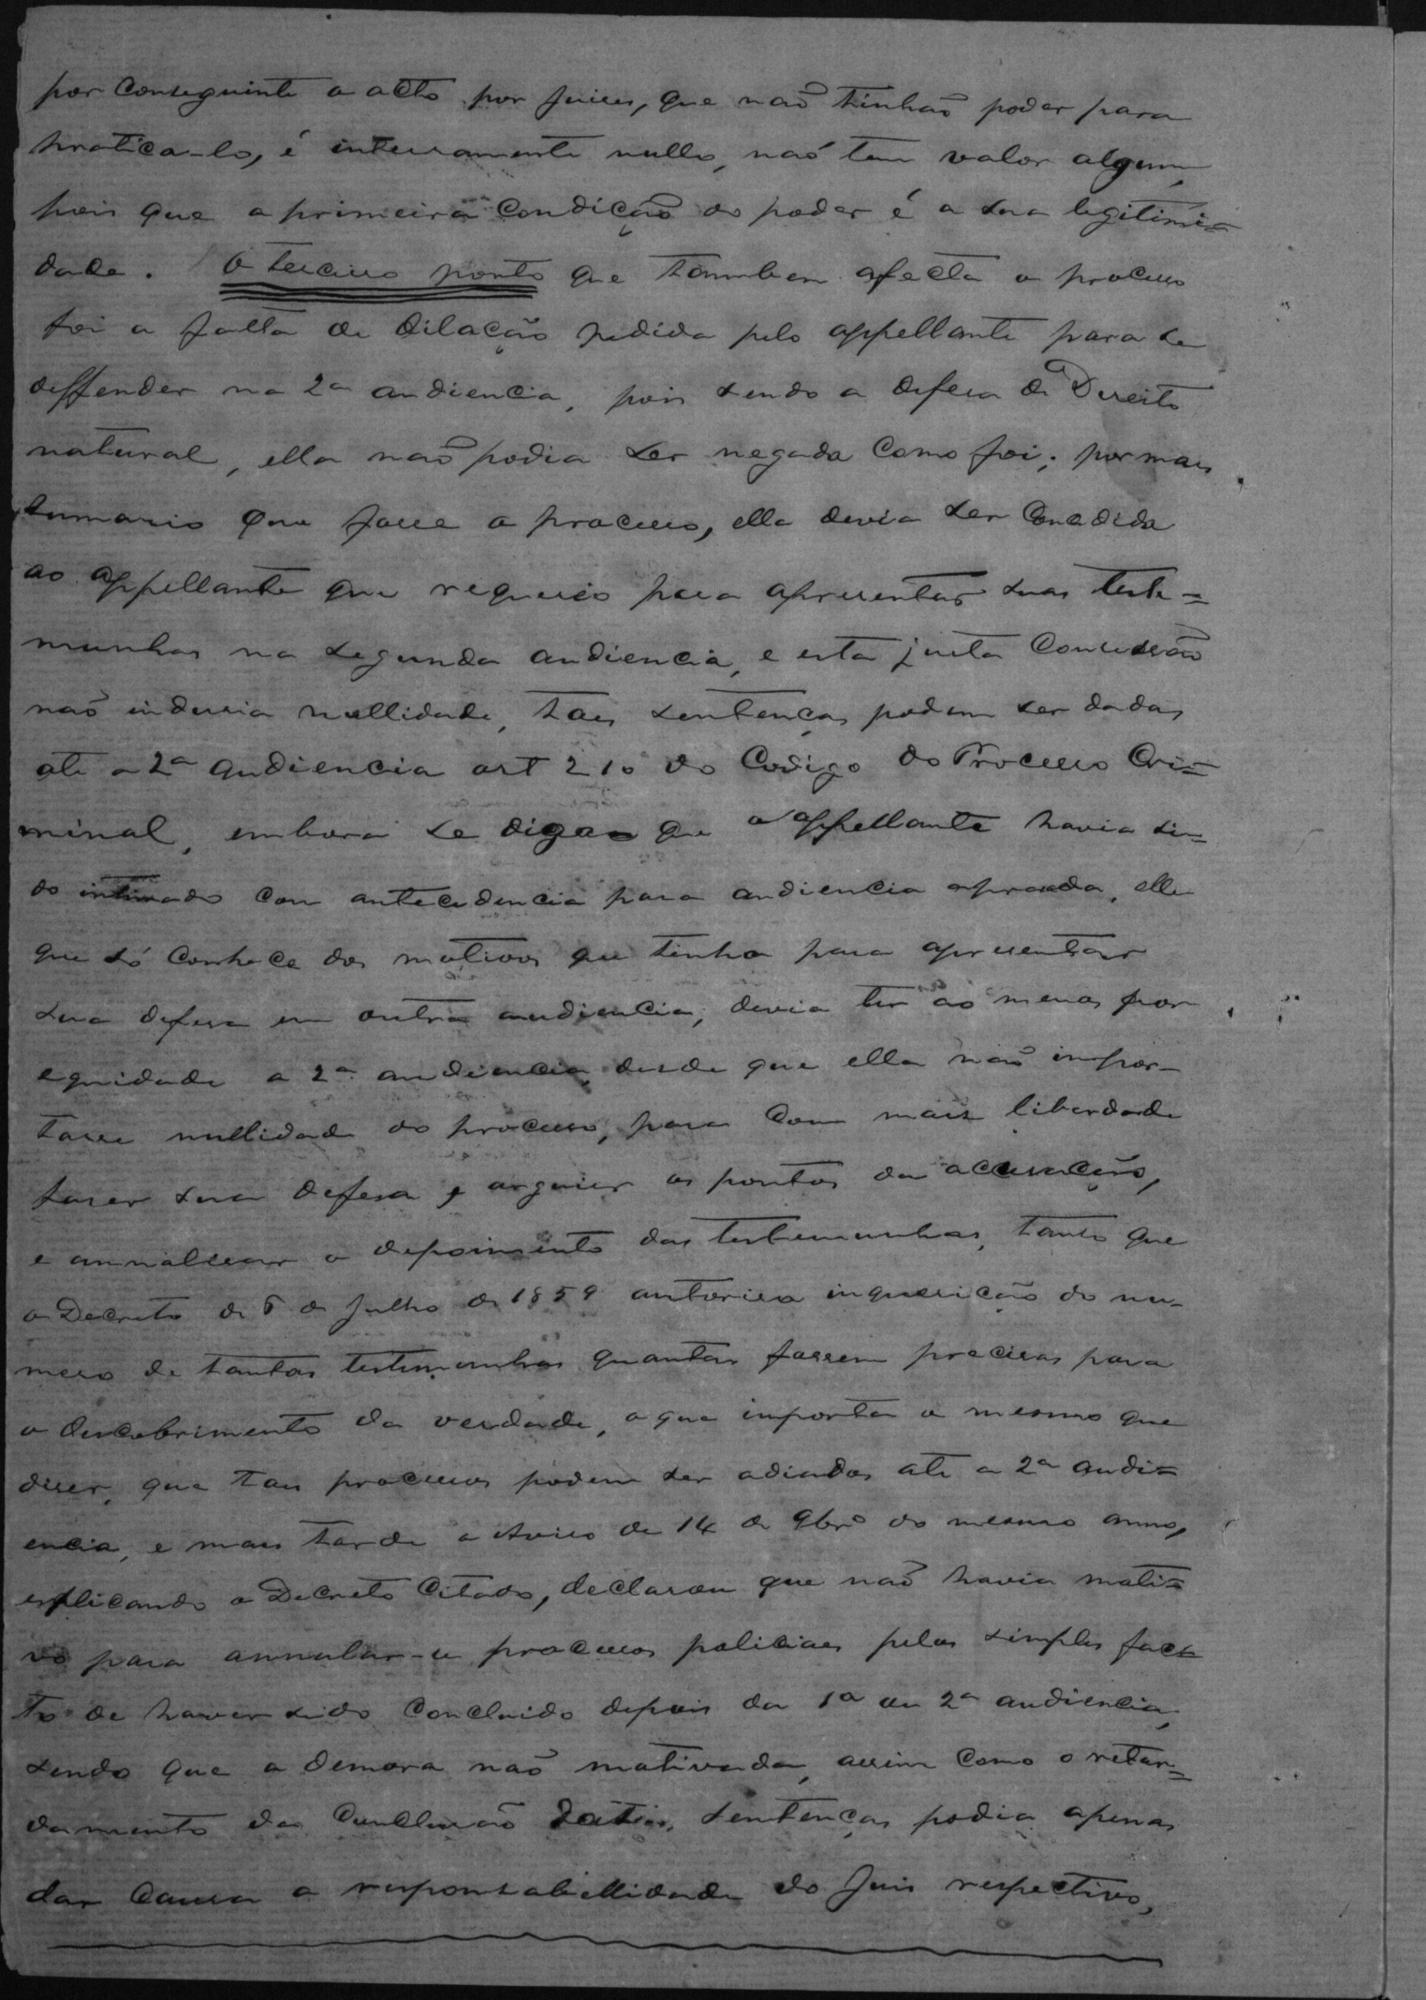 por conseguinte o acto por juises, que naõ tinhaõ poder para
pratica-lo, é inteiramente nullo, naõ tem valor algum,
pois que a primeira condiçaõ do poder é a sua legitimi=
dade. O terceiro ponto que tambem afecta o processo
foi a falta de dilaçaõ pedida pelo appellante para se
deffender na 2ª audiencia, pois sendo a defesa de Direito
natural, ella naõ podia ser negada como foi; por mais
sumario que fosse o processo, ella devia ser concedida
ao appellante que requereo para apresentar suas teste=
munhas na segunda audiencia, e esta justa concessaõ
naõ indusia nullidade, taes sentenças podem ser dadas
até a 2ª audiencia art 210 do Codigo do Processo Cri=
minal, embora se diga que o appellante havia si=
do intimado com antecedencia para audiencia aprasada, elle
que só conhece dos motivos que tinha para apresentar
sua defesa em outra audiencia, devia ter ao menos por
equidade a 2ª audiencia, desde que ella naõ impor-
tasse nullidade do processo, para com mais liberdade
faser sua defesa, e arguier os pontos da accusaçaõ,
e annalisar o depoimento das testemunhas, tanto que
o Decreto de 6 de Julho de 1859 autorisa inquiriçaõ do nu-
mero de tantas testemunhas quantas fossem precisas para
o descobrimento da verdade, o que importa o mesmo que
diser, que taes processos podem ser adiados até a 2ª audi=
encia, e mais tarde o Aviso de 14 de 9brº do mesmo anno,
explicando o Decreto citado, declarou que naõ havia moti=
vo para annular-se processos policiaes pelos simples fac
to de haver sido concluido depois da 1ª ou 2ª audiencia,
sendo que a demora naõ motivada, assim como o retar=
damento da conclusaõ sentenças podia apenas
dar causa a responsabellidade do Juis respectivo,